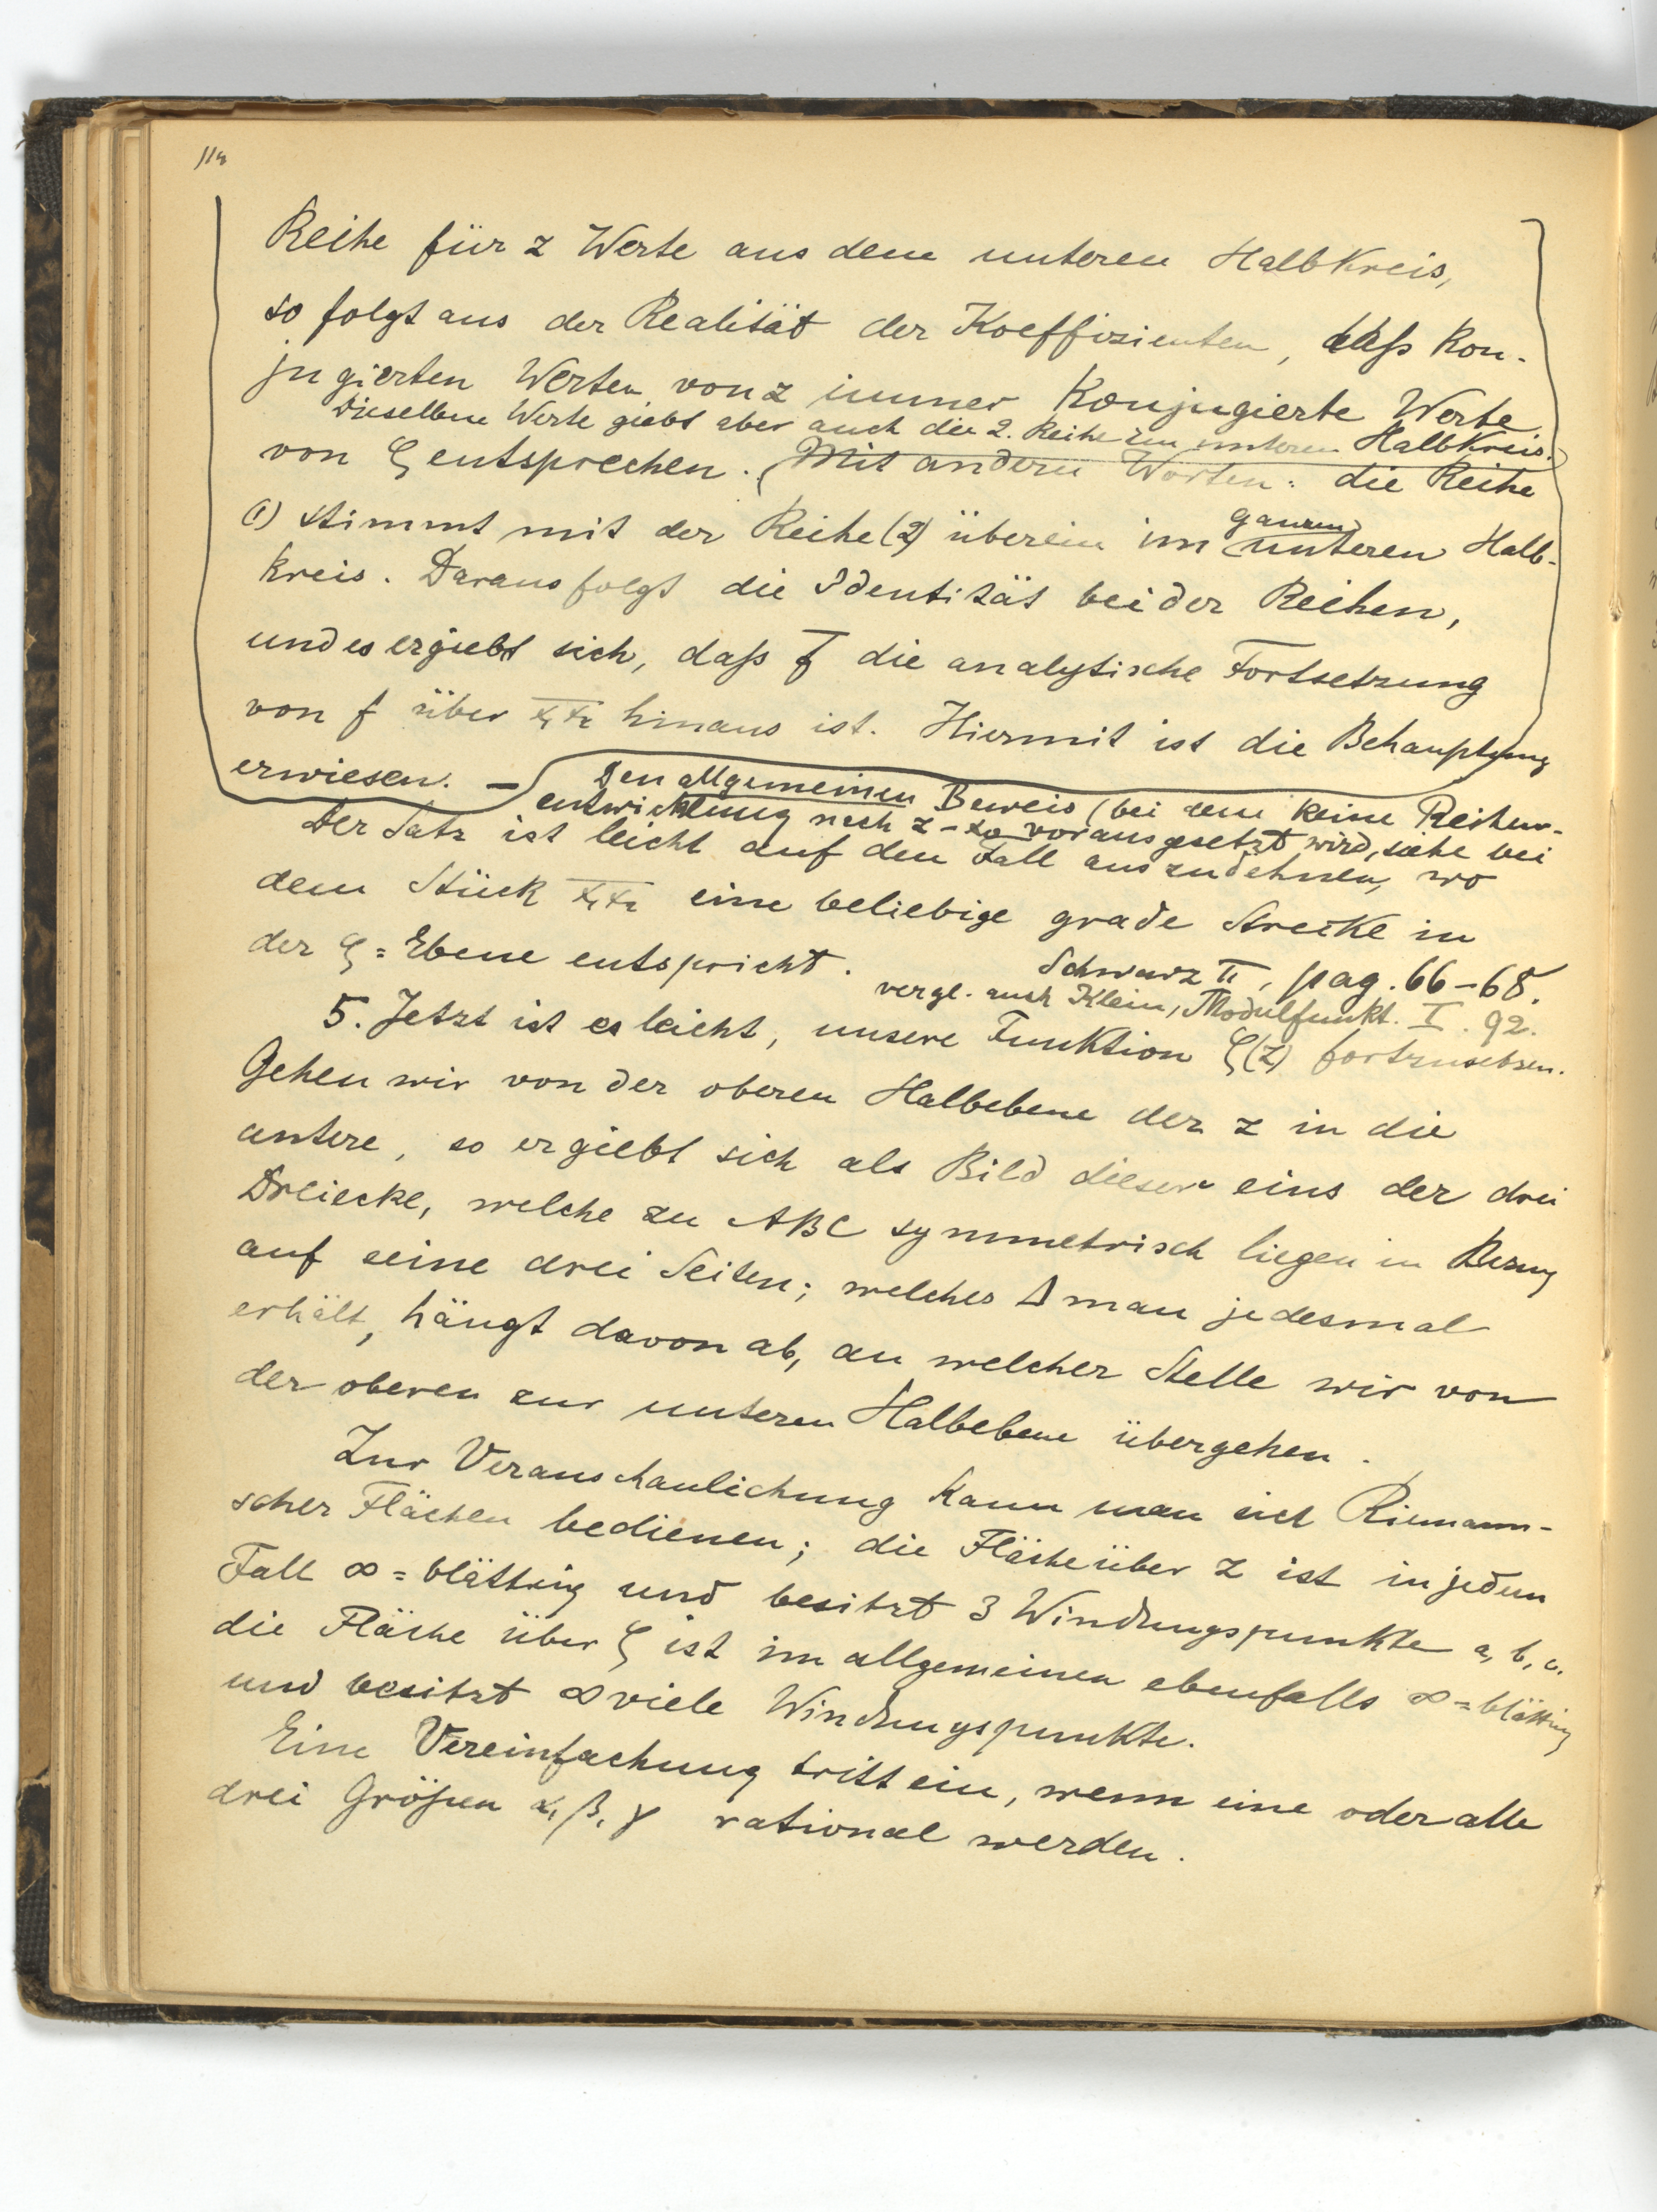 114
Reihe für z Werte aus dem unteren Halbkreis,
so folgt aus der Realität der Koeffizienten, daß kon-
jugierten Werten von z immer konjugierte Werte
Dieselben Werte giebt aber auch die 2. Reihe im unteren Halbkreis.
von ζ entsprechen. (Mit andern Worten: die Reihe
(1) stimmt mit der Reihe (2) überein im unteren Halb-
ganzen
kreis. Daraus folgt die Identität beider Reihen,
und es ergiebt sich, daß f̄ die analytische Fortsetzung
von f über x₁x₂ hinaus ist. Hiermit ist die Behauptung
erwiesen. —
Den allgemeinen Beweis (bei dem keine Reihen-
entwicklung nach z - z₀ vorausgesetzt wird, siehe bei
Der Satz ist leicht auf den Fall auszudehnen, wo
dem Stück x₁x₂ eine beliebige grade Strecke in
der ζ=Ebene entspricht.
Schwarz II, pag. 66-68.
vergl. auch Klein, Modulfunkt. I. 92.
5. Jetzt ist es leicht, unsere Funktion ζ(z) fortzusetzen.
Gehen wir von der oberen Halbebene der z in die
untere, so ergiebt sich als Bild dieser eins der drei
Dreiecke, welche zu ABC symmetrisch liegen in Bezug
auf seine drei Seiten; welches Δ man jedesmal
erhält, hängt davon ab, an welcher Stelle wir von
der oberen zur unteren Halbebene übergehen.
Zur Veranschaulichung kann man sich Riemann-
scher Flächen bedienen; die Fläche über z ist in jedem
Fall ∞=blättrig und besitzt 3 Windungspunkte a, b, c.
die Fläche über ζ ist im allgemeinen ebenfalls ∞=blättrig
und besitzt ∞ viele Windungspunkte.
Eine Vereinfachung tritt ein, wenn eine oder alle
drei Größen α, β, γ rational werden.